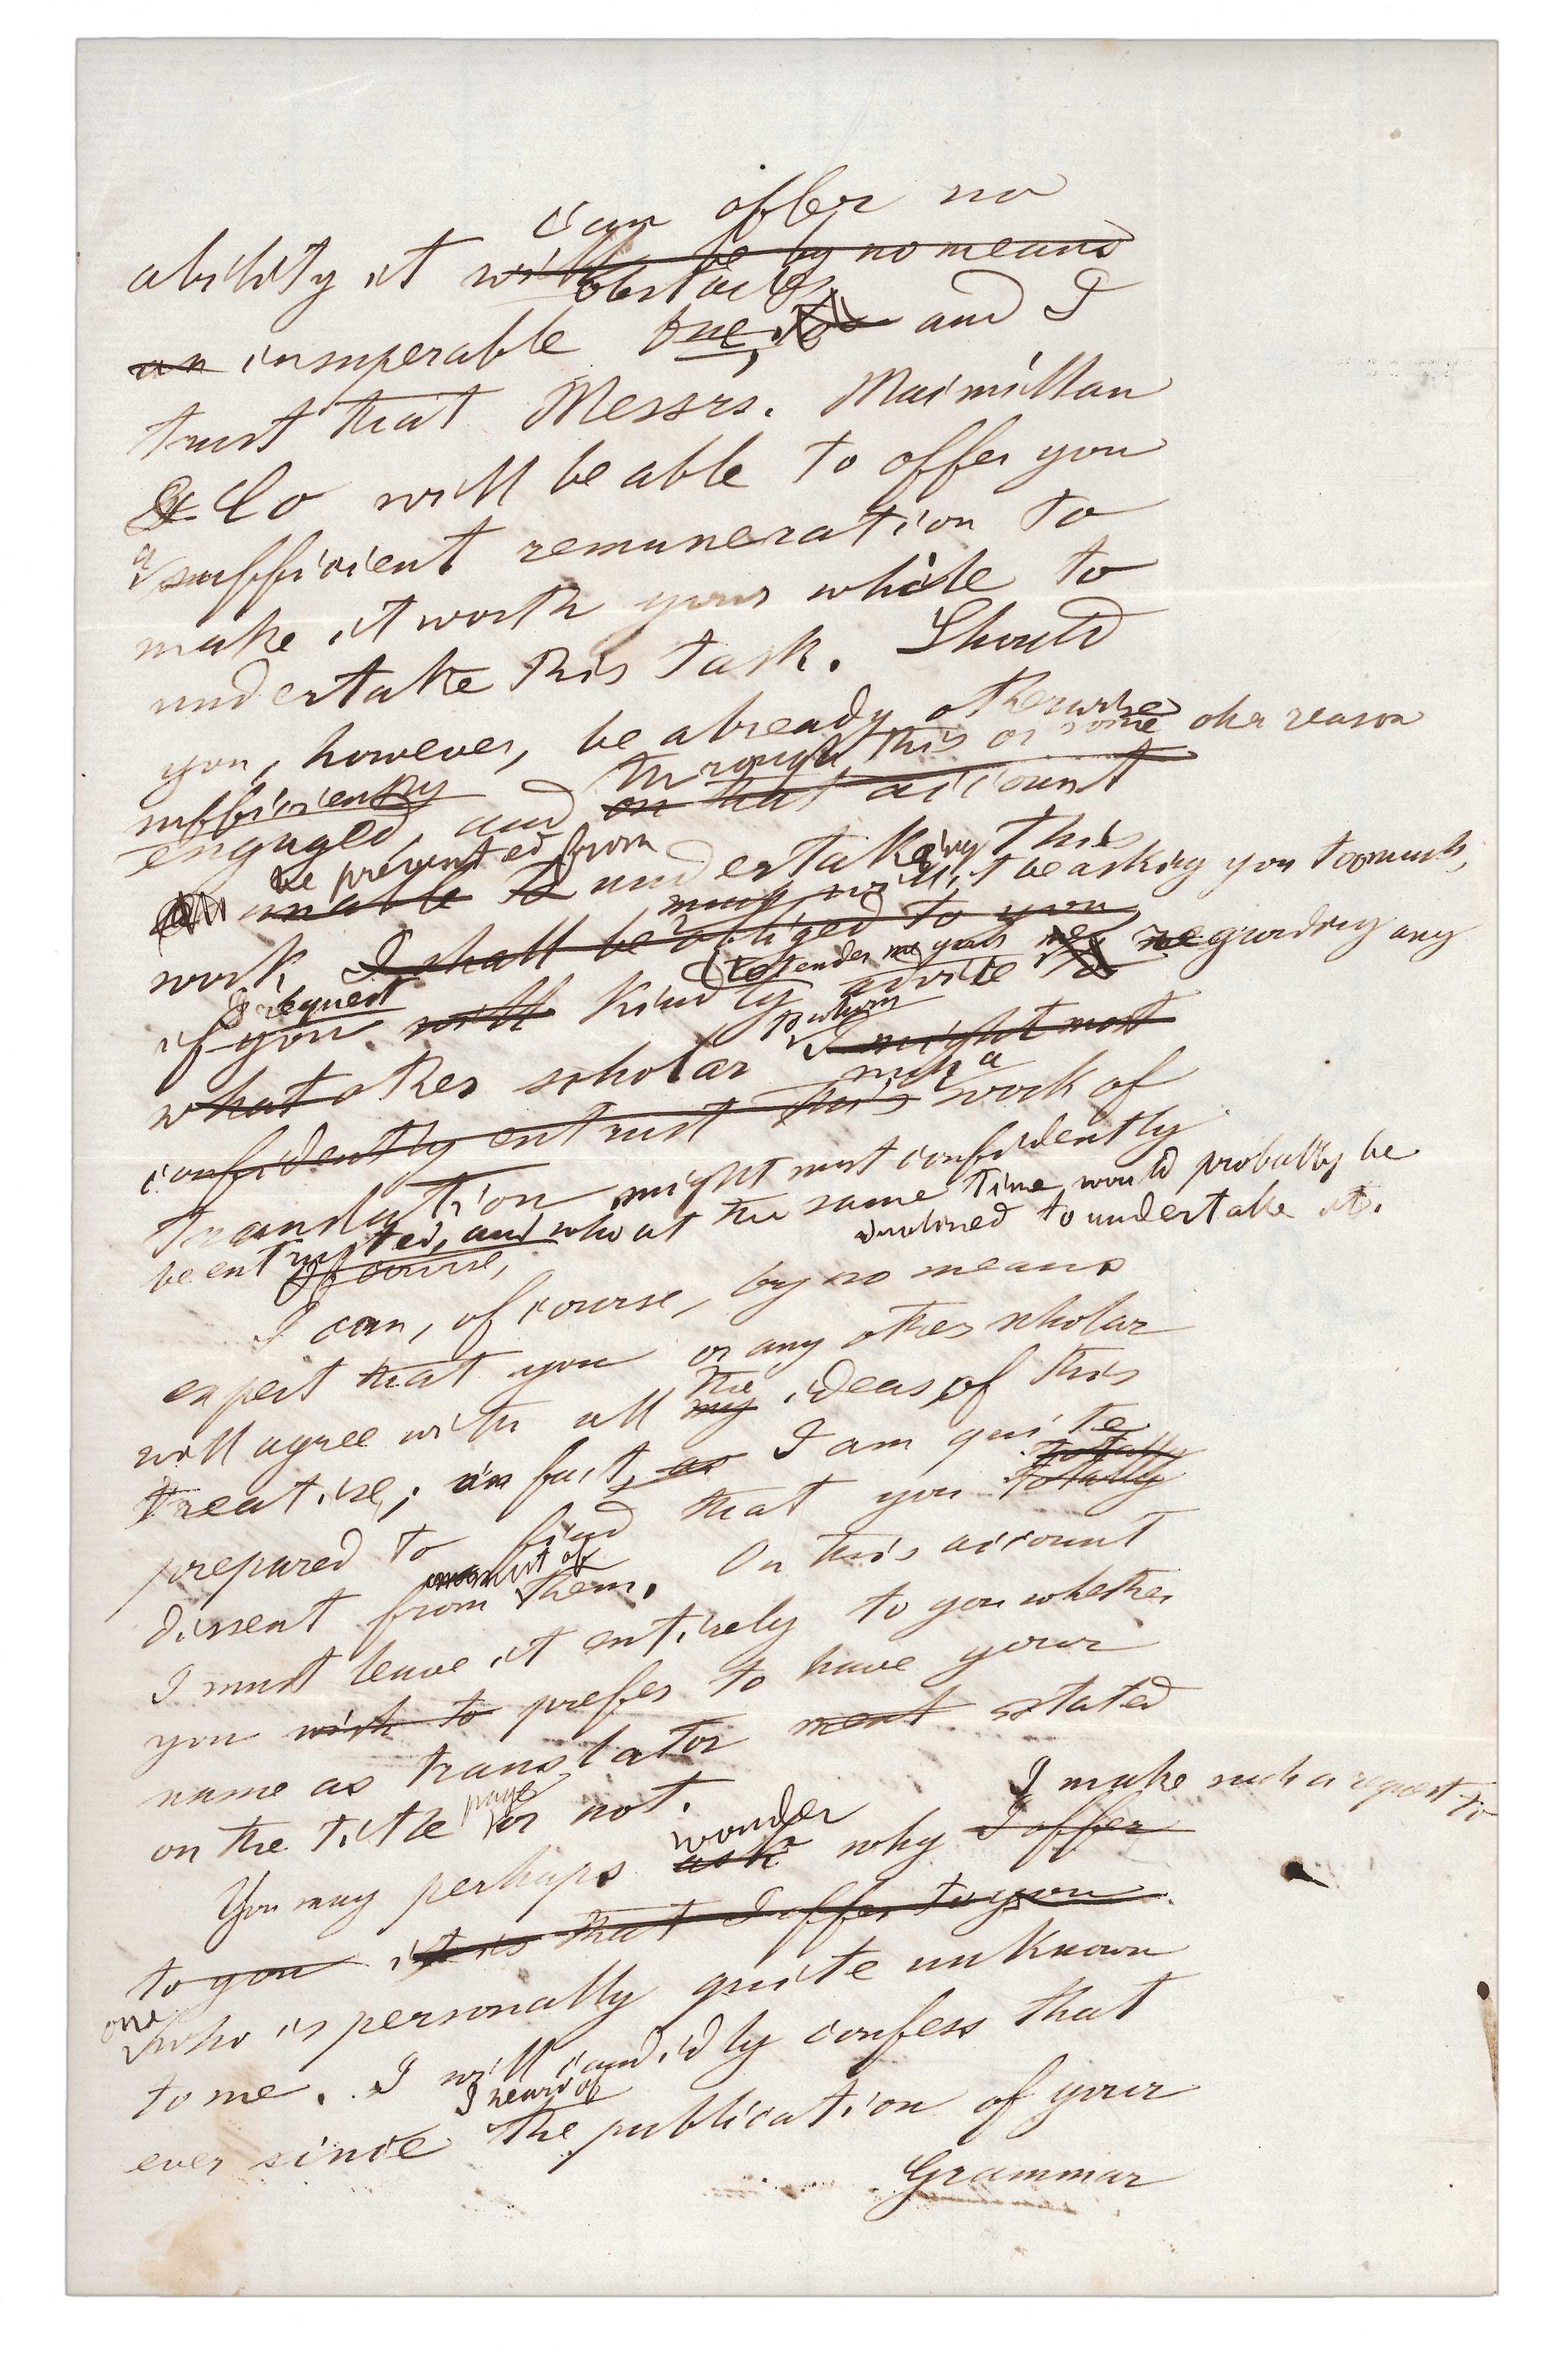 can offer no
ability it will be by no means
obstacles
an insuperable one, and I
trust that Messrs. Macmillan
& Co will be able to offer you
a sufficient remuneration to
make it worth your while to
undertake this task. Should
you, however, be already otherwise
through this or some other reason
sufficiently
engaged, and on that account
be prevented from
unable to undertaking this
may will it be asking you too much,
work I shall be obliged to you
I request to render me your
if you will kindly advice me regarding any
to whom
what other scholar I might most
such a
confidently entrust this work of
translation might most confidently
be entrusted, and who at the same time would probably be
inclined to undertake it.
Of course,
I can, of course, by no means
expect that you or any other scholar
the
will agree with all my ideas of this
treatise; in fact, as I am quite
totally
prepared to find that you totally
most of
dissent from them. On this account
I must leave it entirely to you whether
you wish to prefer to have your
name as translator ment stated
page
on the title or not.
I make such a request to
wonder
You may perhaps ask why I offer
to you it is that I offer to you
one
who is personally quite unknown
to me. I will candidly confess that
I heard of
ever since the publication of your
Grammar